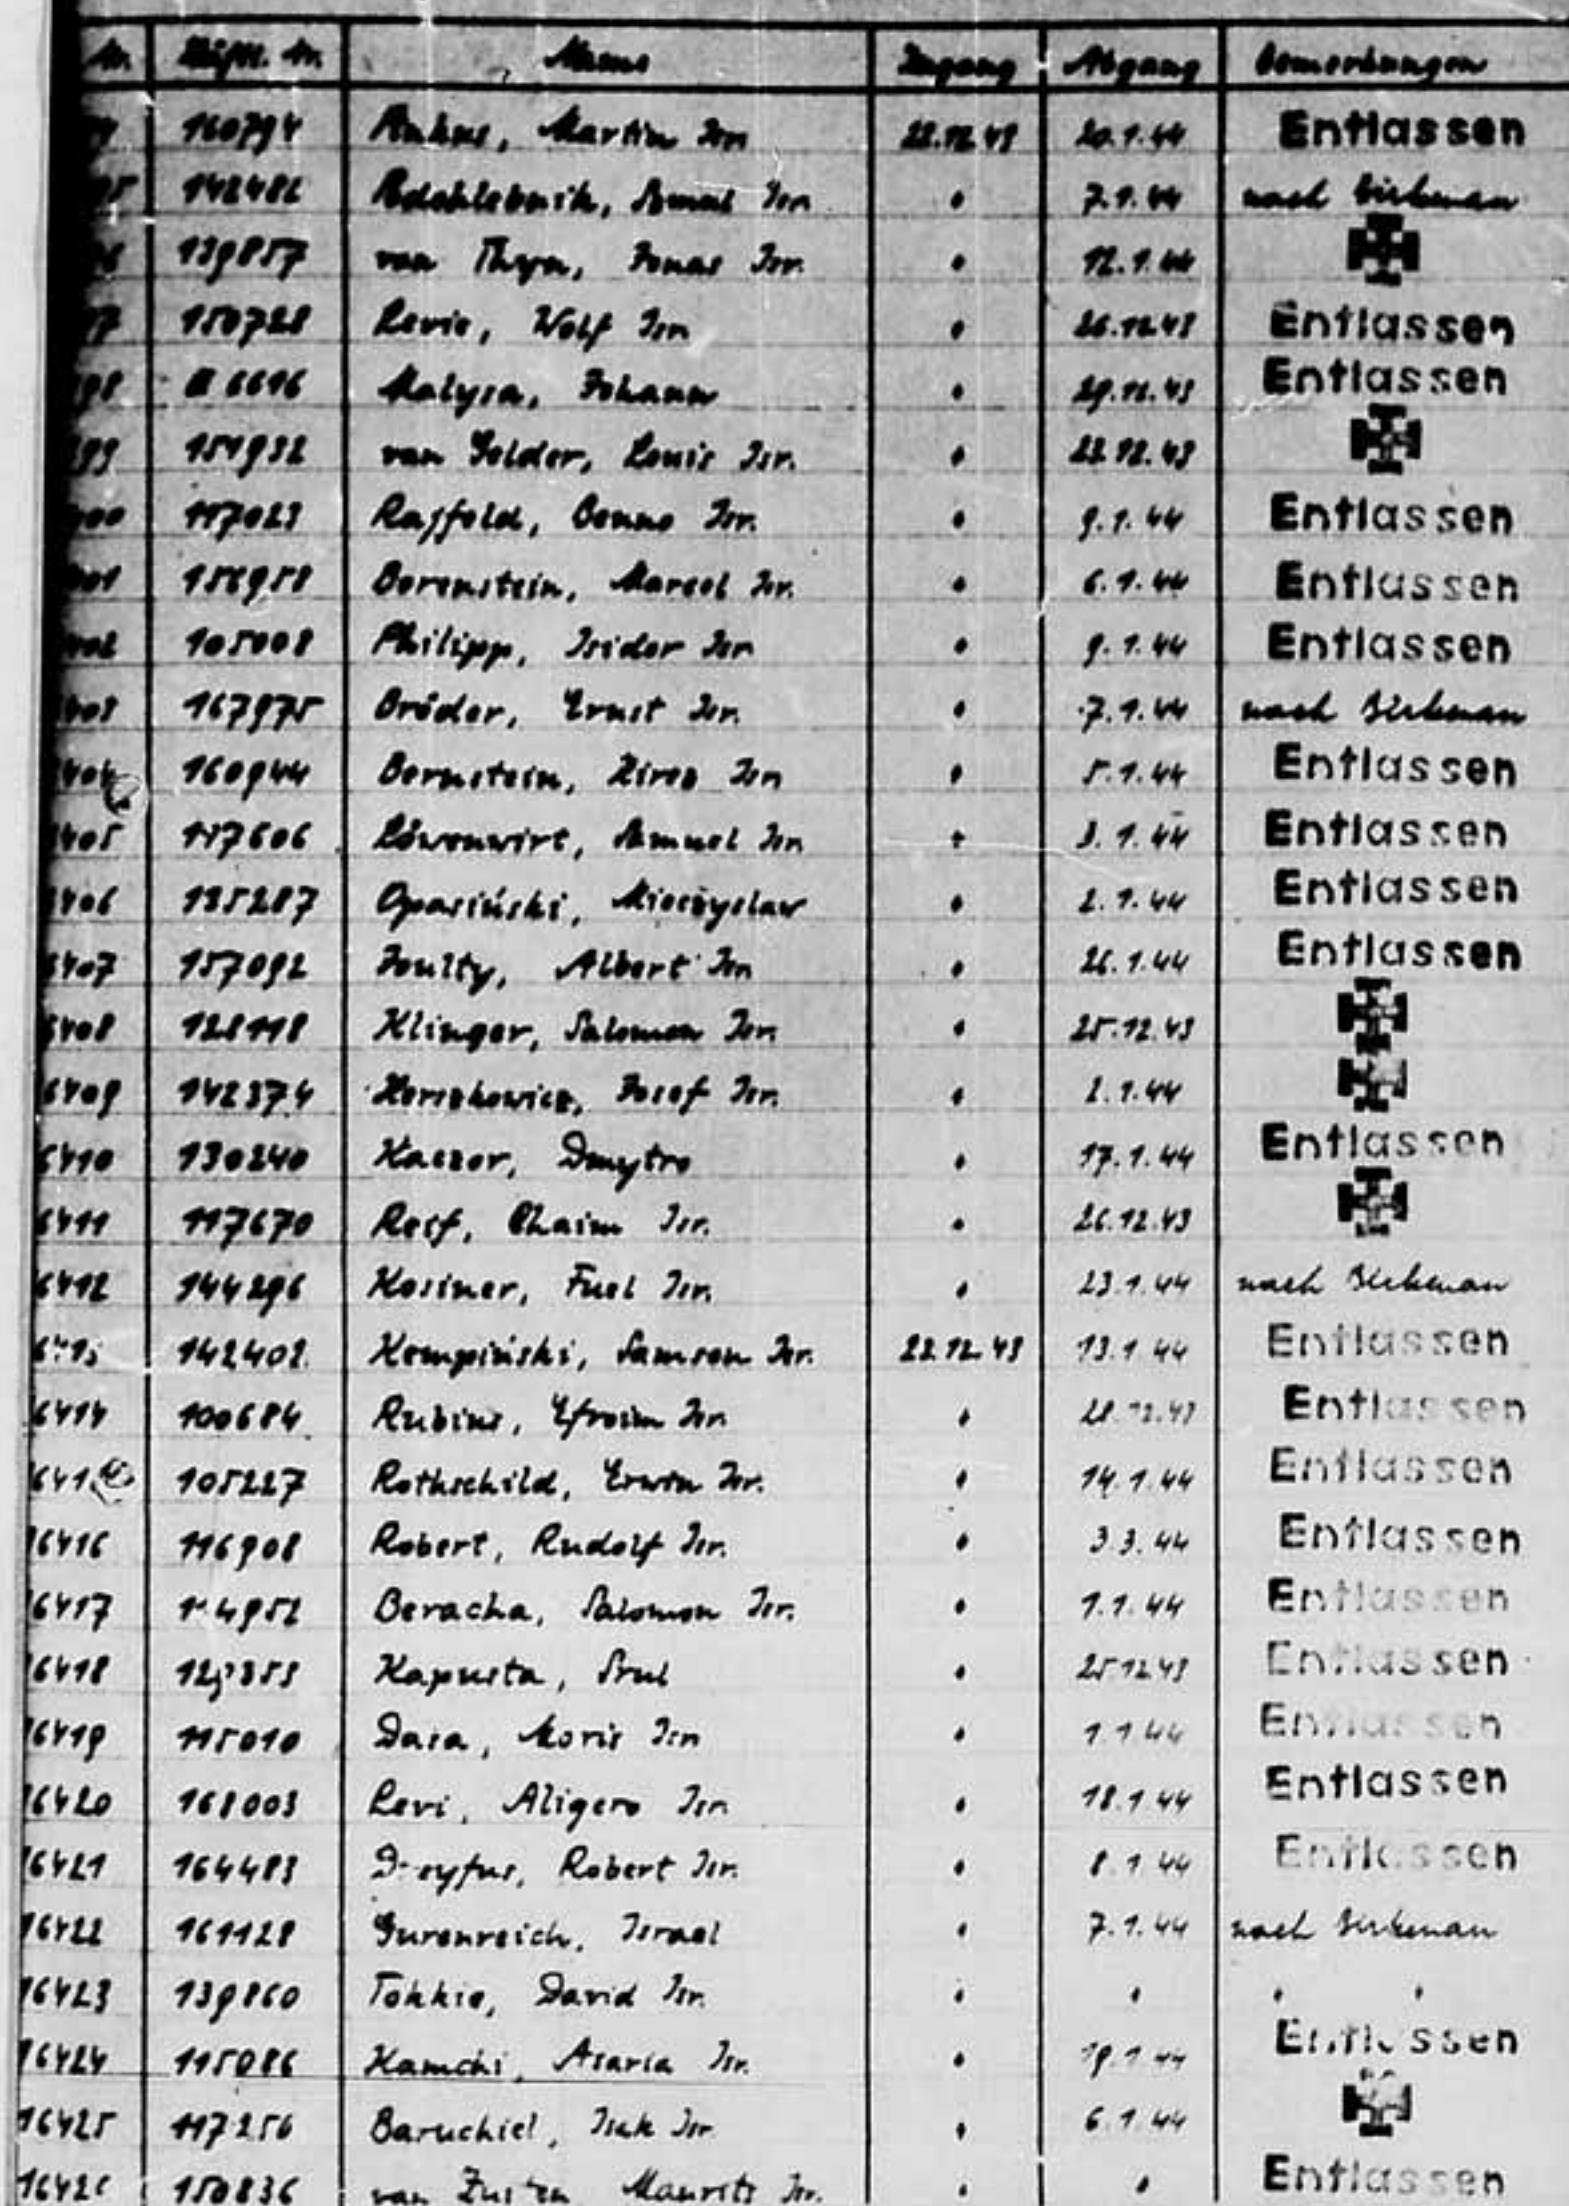 Nr. Häftl. Nr. Name Zugang Abgang Bemerkungen
160794 Martin Isr. 22.12.43 20.1.44 Entlassen
142486 Samuel Isr. " 7.1.44 nach Birkenau
139857 van Thyn, Jonas Isr. " 12.1.44
150728 Levie, Wolf Isr. " 26.12.43 Entlassen
Malysa, Johann " 29.12.43 Entlassen
99 151932 van Gelder, Louis Isr. " 22.12.43
00 117023 Raffeld, Benno Isr. " 9.1.44 Entlassen
01 156958 Borenstein, Marcel Isr. " 6.1.44 Entlassen
02 105008 Philipp, Isidor Isr. " 9.1.44 Entlassen
403 167975 Bröder, Ernst Isr. " 7.1.44 nach Birkenau
404 160944 Bernstein, Isr. " 5.1.44 Entlassen
405 117606 Löwenwirt, Samuel Isr. " 3.1.44 Entlassen
6406 125287 Opasiński, Mieczyslaw " 2.1.44 Entlassen
6407 157092 Albert Isr. " 26.1.44 Entlassen
6408 128118 Klinger, Salomon Isr. " 25.12.43
6409 142374 Herszkowicz, Josef Isr. " 2.1.44
6410 130240 Kaczor, Dmytro " 17.1.44 Entlassen
6411 117670 Reif, Chaim Isr. " 26.12.43
6412 144296 Kosiner, Fuel Isr. " 23.1.44 nach Birkenau
142402 Kempiński, Samson Isr. 22.12.43 13.1.44 Entlassen
6414 100684 Rubins, Efroim Isr. " 28.12.43 Entlassen
641 105227 Rothschild, Erwin Isr. " 14.1.44 Entlassen
16416 116908 Robert, Rudolf Isr. " 3.3.44 Entlassen
16417 Beracha, Salomon Isr. " 1.1.44 Entlassen
16418 Kapusta, Srul " 25.12.43 Entlassen
16419 115010 Dasa, Moris Isr. " 1.1.44 Entlassen
16420 168003 Levi, Aligero Isr. " 18.1.44 Entlassen
16421 164483 Dreyfus, Robert Isr. " 8.1.44 Entlassen
16422 161128 Gurenreich, Israel " 7.1.44 nach Birkenau
16423 139860 Tokkie, David Isr. " " " "
16424 115086 Kamchi, Asaria Isr. " 19.1.44 Entlassen
16425 117256 Baruchiel, Isak Isr. " 6.1.44
16426 150836 van Maurits Isr. " " Entlassen